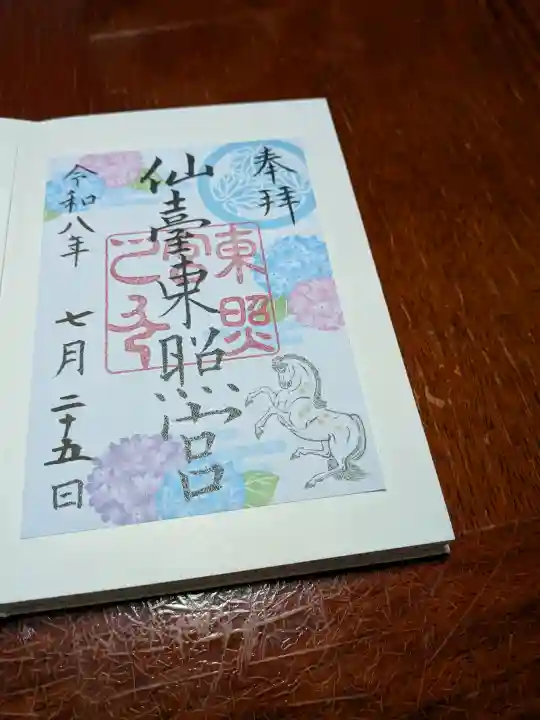 奉拝
仙臺東照宮
東照宮
令和八年 七月二十五日